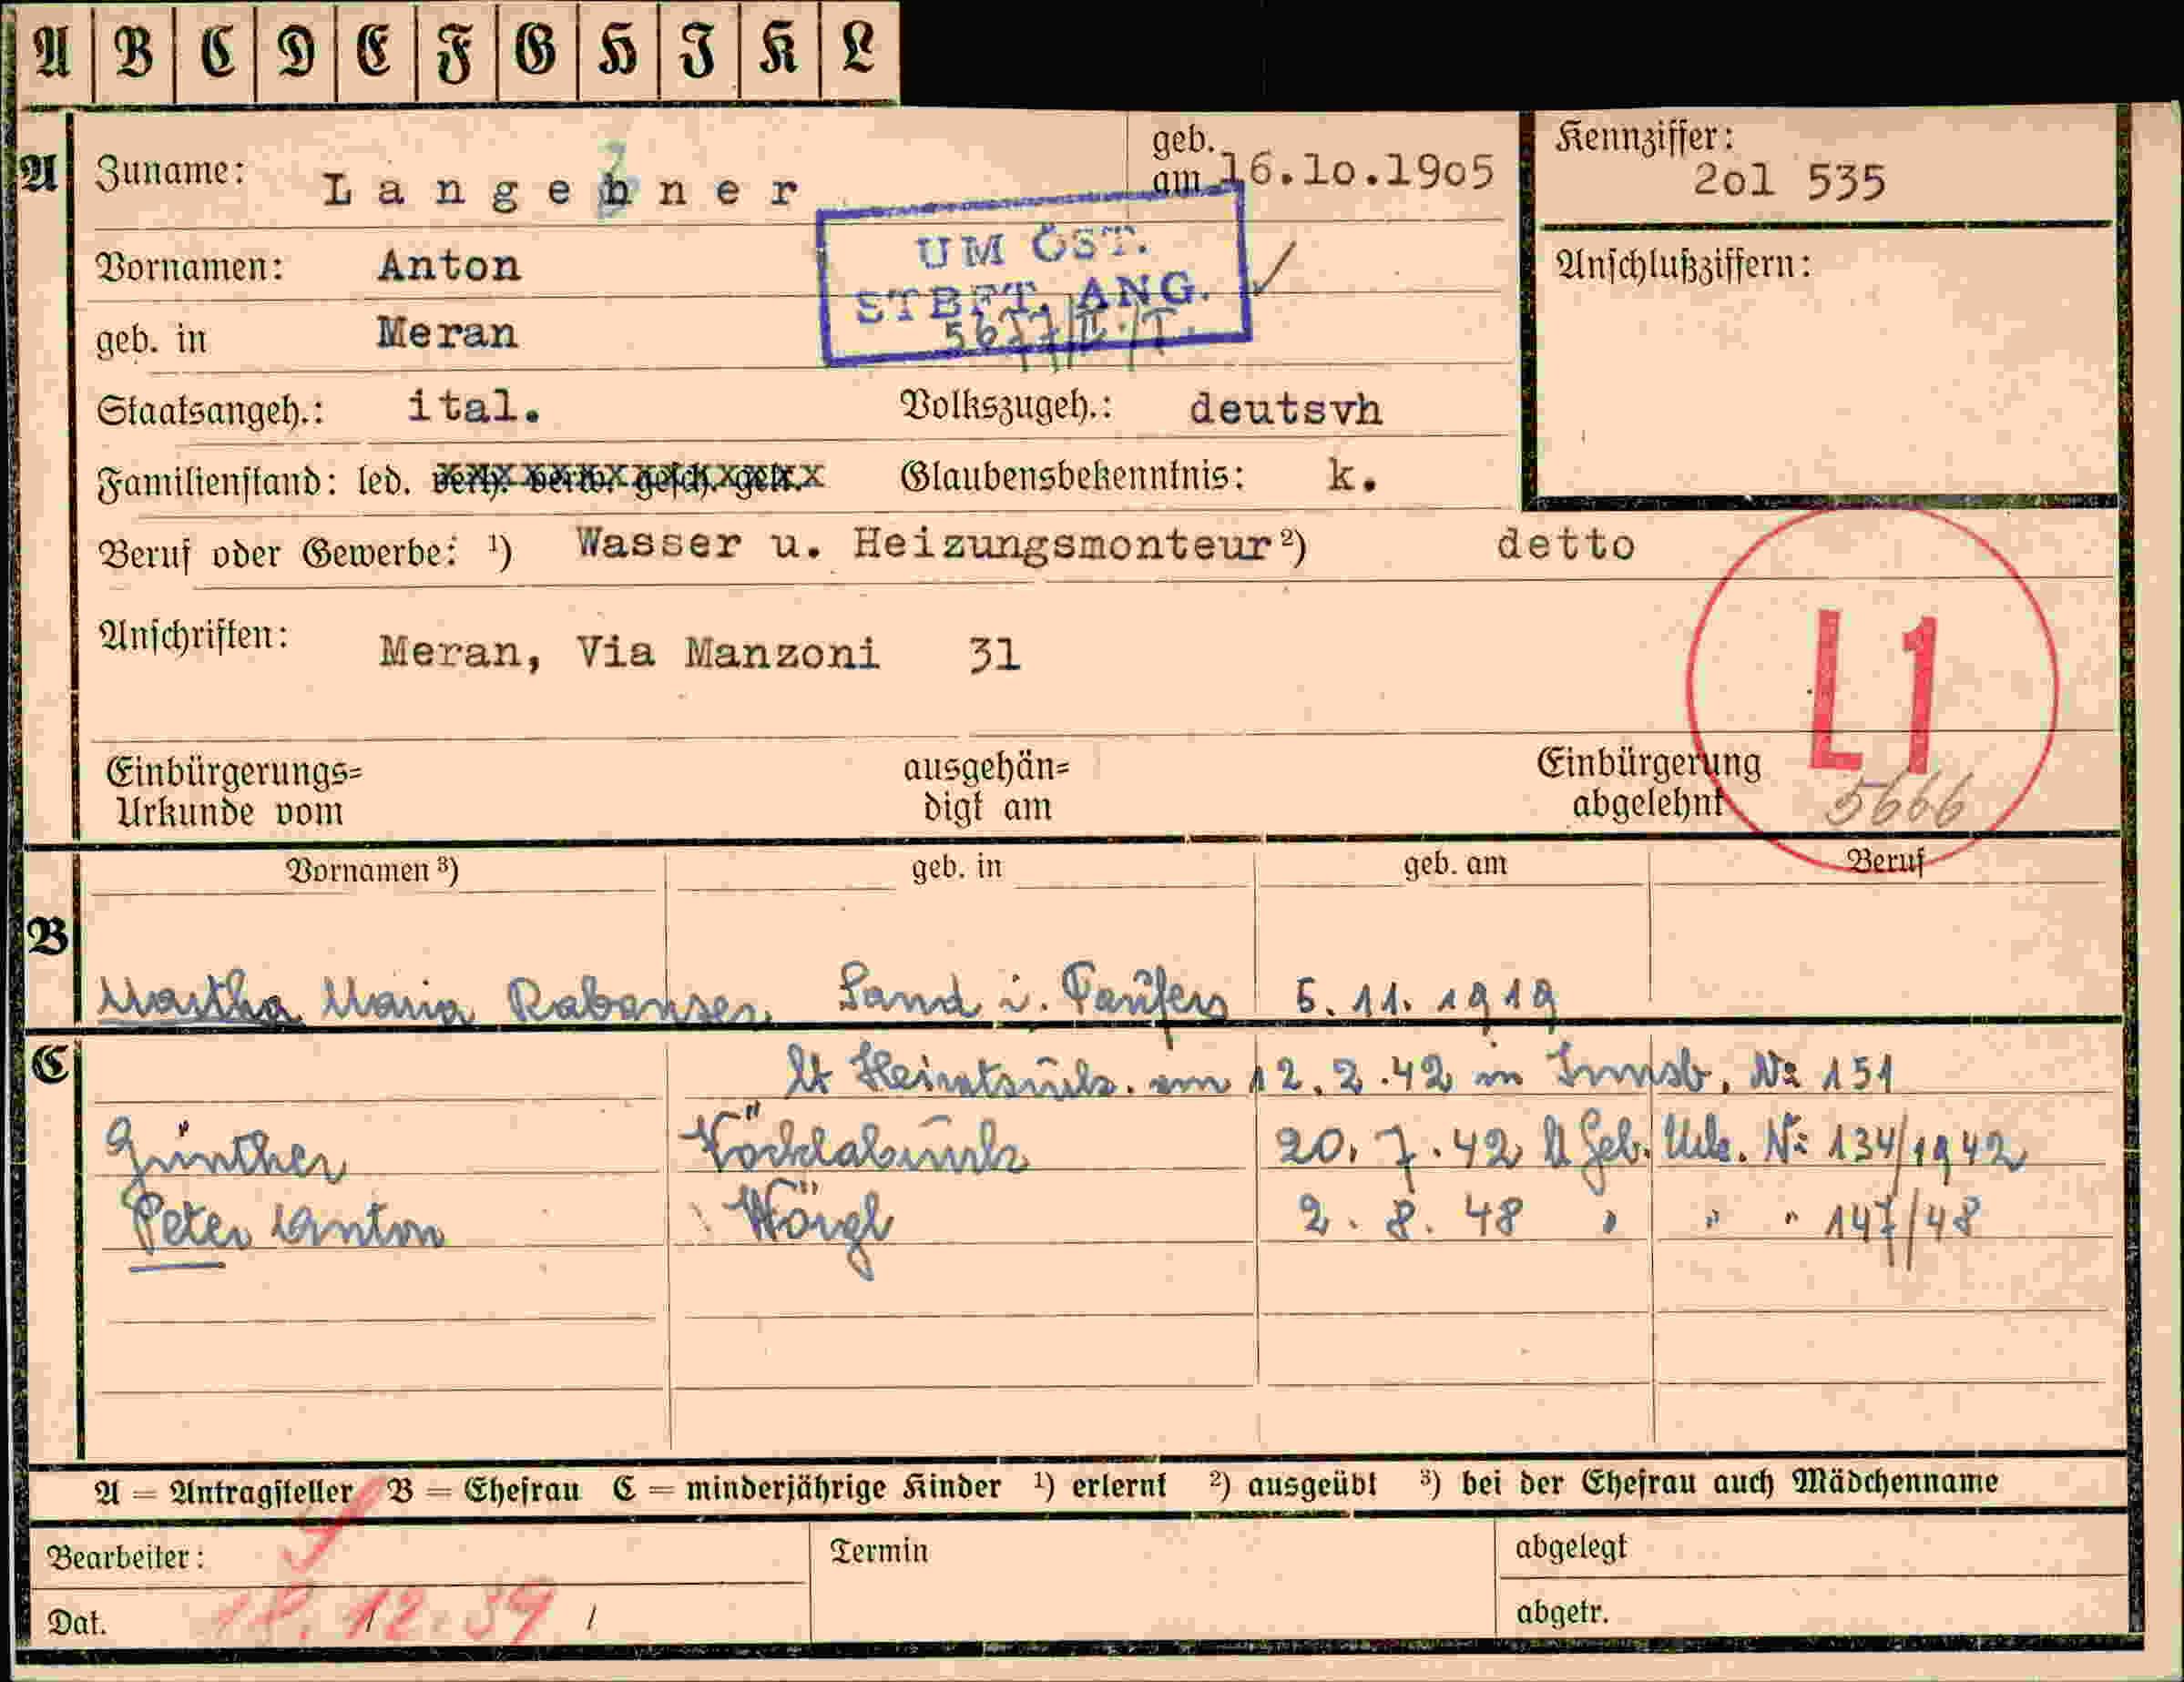 A B C D E F G H I K L
A Zuname: Langebner geb. am 16.10.1905 Kennziffer: 2ol 535
Vornamen: Anton UM ÖST. Anschlußziffern:
STBFT. ANG.
geb. in Meran
Staatsangeh.: ital. Volkszugeh.: deutsvh
Familienstand: led. verh. verw. gesch. getr. Glaubensbekenntnis: k.
Beruf oder Gewerbe: ¹) Wasser u. Heizungsmonteur ²) detto
Anschriften: Meran, Via Manzoni 31
L1
Einbürgerungs= ausgehän= Einbürgerung
Urkunde vom digt am abgelehnt 5666
Vornamen ³) geb. in geb. am Beruf
B
Martha Maria Rabanser Sand i. Taufers 5.11.1919
C lt Heiratsurk. am 12.2.42 in Innsb. Nr 151
Günther Vöcklabruck 20.7.42 lt Geb. Urk. Nr 134/1942
Peter Anton Wörgl 2.8.48 " " " 147/48
A = Antragsteller B = Ehefrau C = minderjährige Kinder ¹) erlernt ²) ausgeübt ³) bei der Ehefrau auch Mädchenname
Bearbeiter: Termin abgelegt
Dat. 18.12.39 / abgetr.